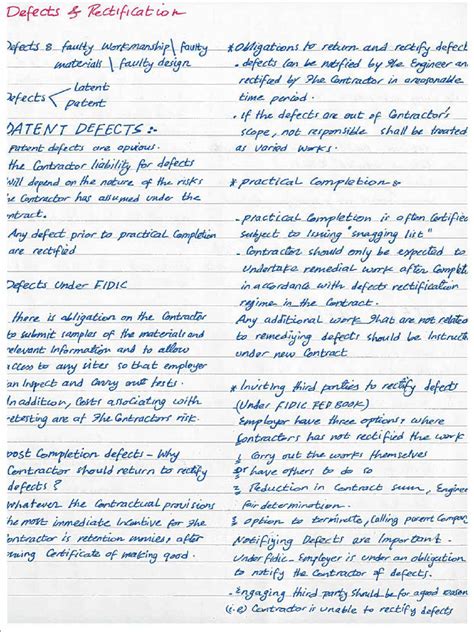 Defects & Rectification
Defects & faulty workmanship \ faulty
materials \ faulty design
Defects
Latent
patent
PATENT DEFECTS :-
patent defects are opvious.
the Contractor liability for defects
will depend on the nature of the risks
the Contractor has assumed under the
contract.
Any defect prior to practical Completion
are rectified
Defects Under FIDIC
there is obligation on the Contractor
to submit samples of the materials and
relevant Information and to allow
access to any sites so that employer
can Inspect and Carry out tests.
In addition, Costs associating with
retesting are at The Contractors risk.
post Completion defects - Why
Contractor should return to rectify
defects ?
whatever the Contractual provisions
the most immediate Incentive for The
Contractor is retention monies, after
Certificate of making good.
* Obligations to return and rectify defect
- defects can be notified by The Engineer an
rectified by The Contractor in a reasonable
time period.
- if the defects are out of Contractor's
scope, not responsible shall be treated
as varied works.
* practical Completion :-
- practical Completion is often Certified
subject to Issuing "snagging list"
- Contractor should only be expected to
Undertake remedial work after Complet
in accordance with defects rectification
regime in the Contract.
Any additional work that are not relate
to remedizing defects should be Instruct
under new Contract
* Inviting third parties to rectify defects
(Under FIDIC RED BOOK)
Employer have three options; where
Contractors has not rectified the work
1 Carry out the works themselves
or have others to do so
2 Reduction in Contract sum, Engineer
fair determination.
3 option to terminate, Calling parent Compa
Notifiying Defects are Important.
Under fidic - Employer is under an obligation
to notify the Contractor of defects.
- Engaging third party should be for a good reason
(i.e) Contractor is unable to rectify defects